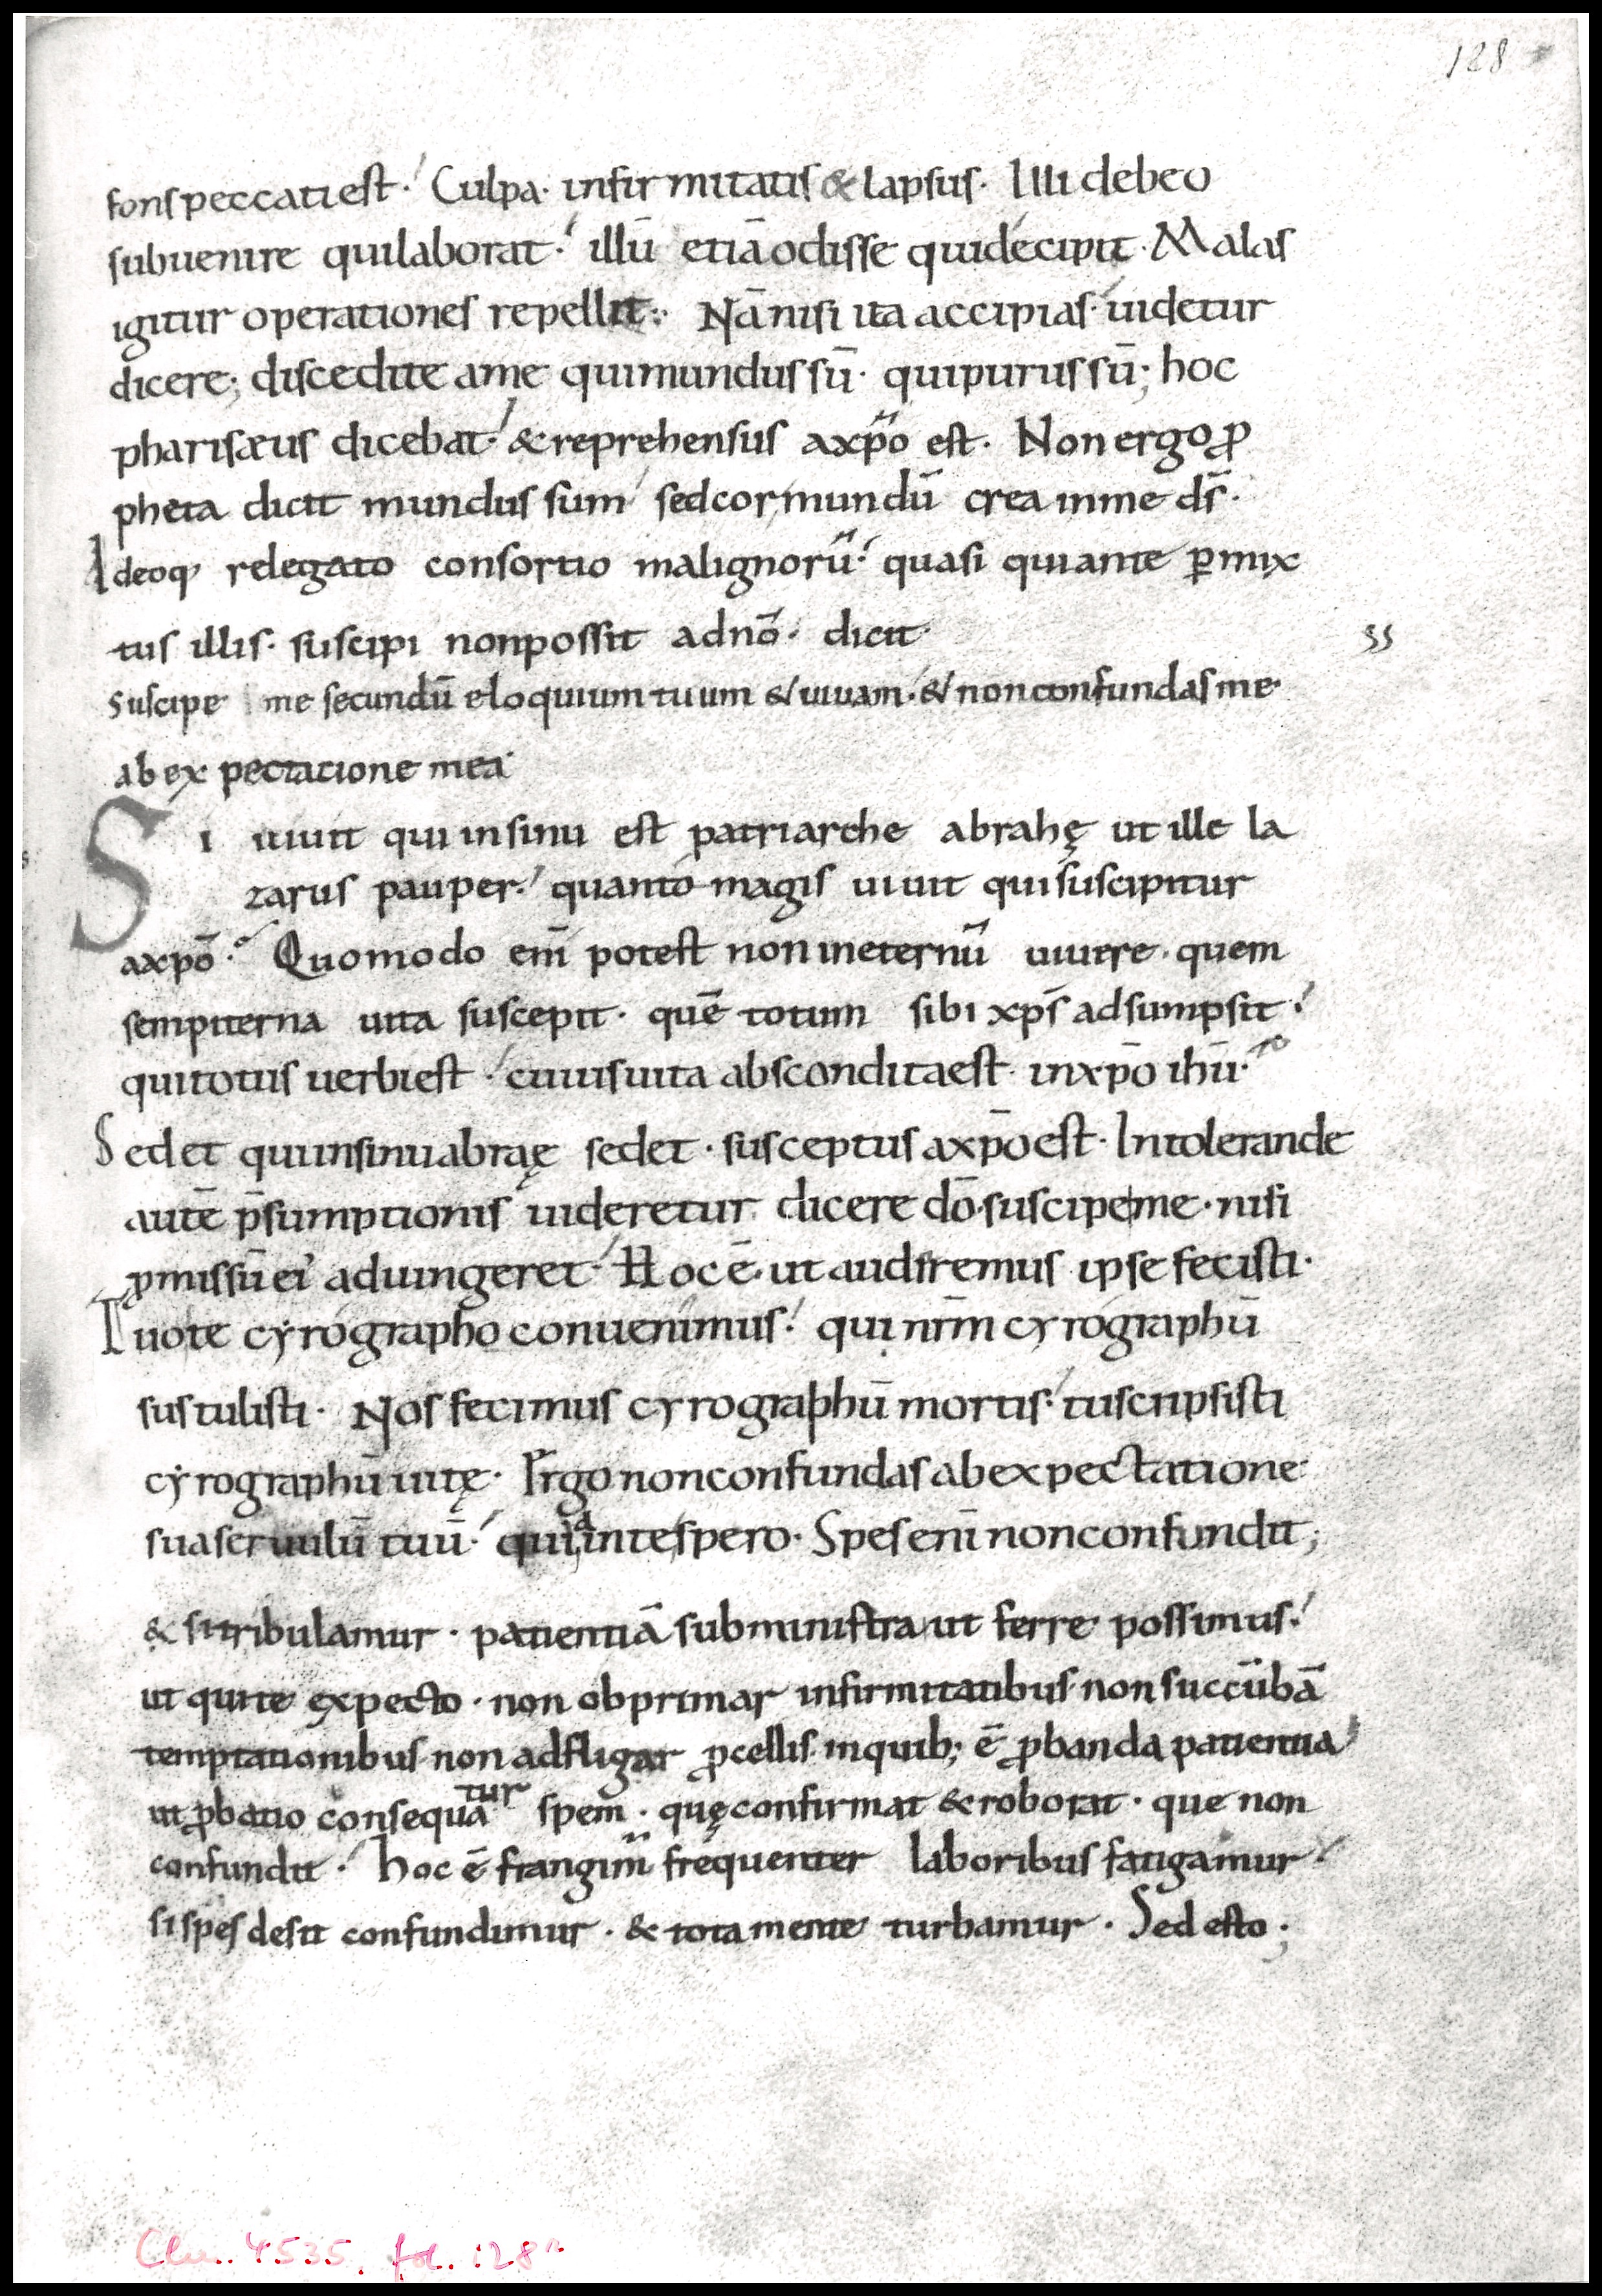 128
fons peccati est· Culpa· infirmitatis & lapsus· Illi debeo
subuenire qui laborat· illū etiā odisse qui decipit· Malas
igitur operationes repellit· Nā nisi ita accipias· uidetur
dicere; discedite a me qui mundus sū· qui purus sū; hoc
pharisæus dicebat· & reprehensus a xp̄o est· Non ergo ꝓ
pheta dicit mundus sum sed cor mundū crea in me d̄s·
Ideoq· relegato consortio malignorū· quasi qui ante ꝑmix
tus illis· suscipi non possit ad nō· dicit·
suscipe me secundū eloquium tuum & uiuam· & non confundas me·
ab expectatione mea·
Si uiuit qui in sinu est patriarche abrahę ut ille la
zarus pauper· quanto magis uiuit qui suscipitur
a xp̄o· Quomodo eni̅ potest non in eternū uiuere· quem
sempiterna uita suscepit· quē totum sibi xp̄s adsumpsit·
qui totus uerbi est· cuius uita abscondita est in xp̄o ih̄u·
Sed et qui in sinu abraę sedet· susceptus a xp̄o est· Intolerande
autē p̄sumptionis uideretur dicere dō· suscipe me· nisi
ꝓmissū ei aduingeret· Hoc ē· ut audiremus ipse fecisti·
Tuo te cyrographo conuenimus· qui nr̄m cyrographū
sustulisti· Nos fecimus cyrographū mortis· tu scripsisti
cyrographū uitę· Ergo non confundas ab expectatione
sua seruulū tuū· quia in te spero· Spes eni̅ non confundit;
& si tribulamur· patientiā subministra ut ferre possimus·
ut qui te expecto· non obprimar infirmitatibus· non succūbā
temptationibus· non adfligar ꝓcellis· in quib; ē ꝓbanda patientia
ut ꝓbatio consequatur spem· quę confirmat & roborat· que non
confundit· hoc ē frangim̄ frequenter laboribus fatigamur
si spes desit confundimur· & tota mente turbamur· Sed esto;
Clm. 4535. fol. 128r